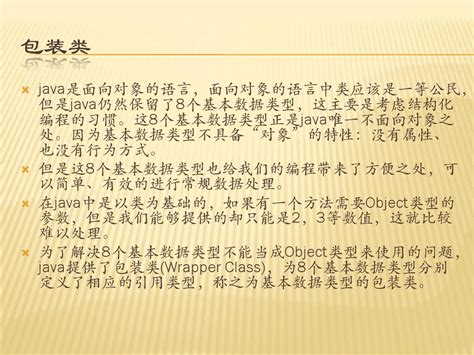 包装类
java是面向对象的语言，面向对象的语言中类应该是一等公民，
但是java仍然保留了8个基本数据类型，这主要是考虑结构化
编程的习惯。这8个基本数据类型正是java唯一不面向对象之
处。因为基本数据类型不具备“对象”的特性：没有属性、
也没有行为方式。
但是这8个基本数据类型也给我们的编程带来了方便之处，可
以简单、有效的进行常规数据处理。
在java中是以类为基础的，如果有一个方法需要Object类型的
参数，但是我们能够提供的却只能是2，3等数值，这就比较
难以处理。
为了解决8个基本数据类型不能当成Object类型来使用的问题，
java提供了包装类(Wrapper Class)，为8个基本数据类型分别
定义了相应的引用类型，称之为基本数据类型的包装类。